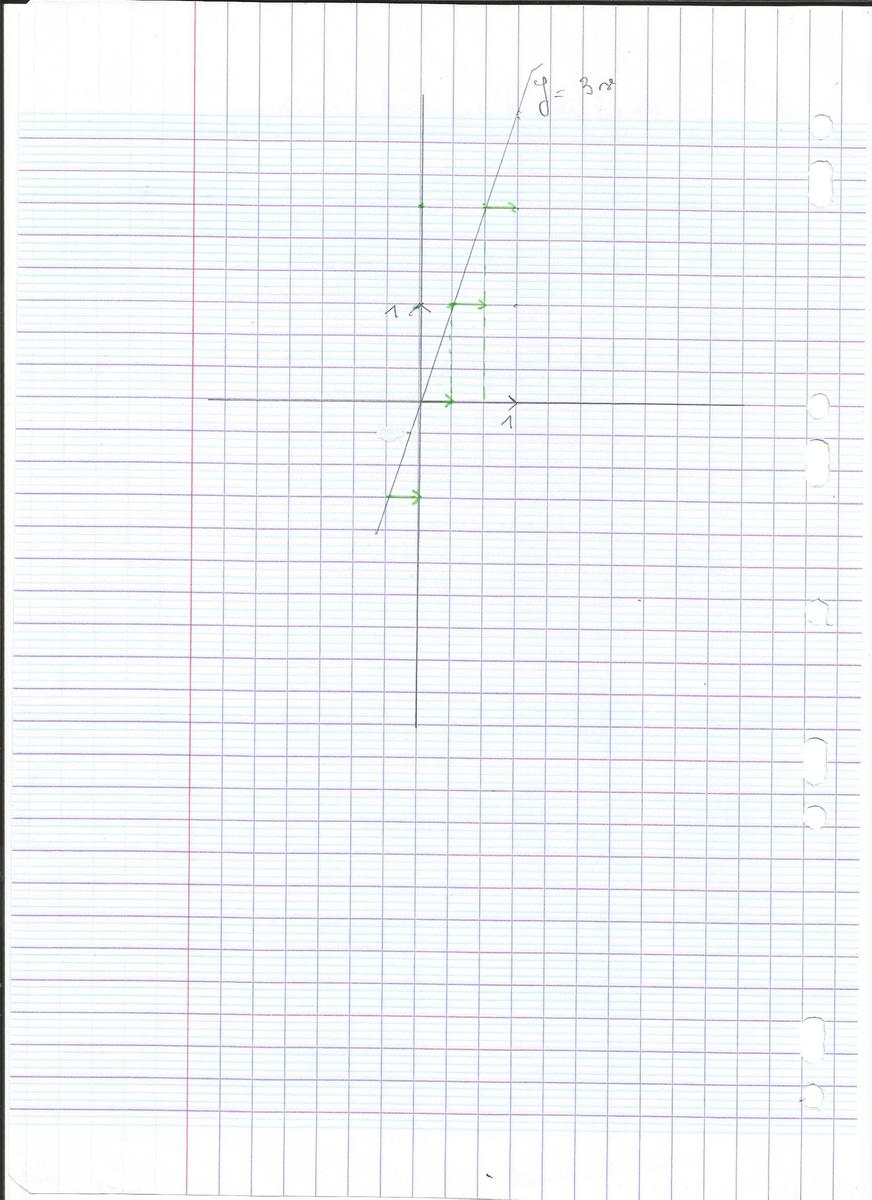 y = 3x
1
1